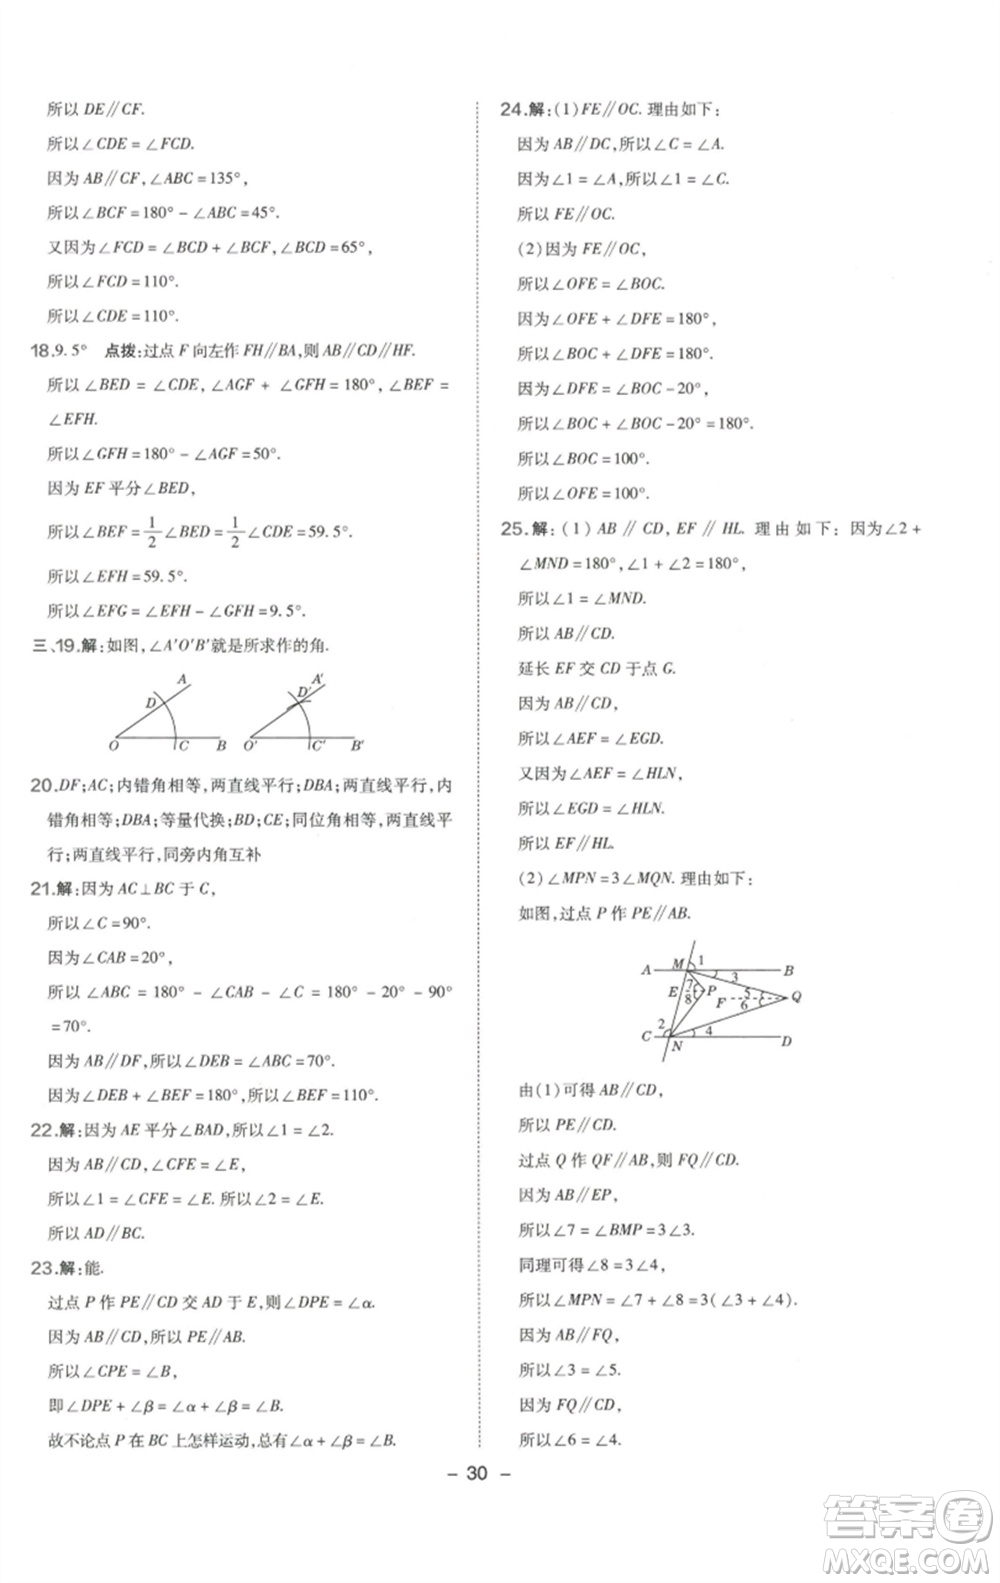 所以 DE∥CF.
所以∠CDE=∠FCD.
因为 AB∥CF,∠ABC=135°,
所以∠BCF=180°-∠ABC=45°.
又因为∠FCD=∠BCD+∠BCF,∠BCD=65°,
所以∠FCD=110°.
所以∠CDE=110°.
18.9.5° 点拨:过点 F 向左作 FH∥BA,则 AB∥CD∥HF.
所以∠BED=∠CDE,∠AGF+∠GFH=180°,∠BEF=
∠EFH.
所以∠GFH=180°-∠AGF=50°.
因为 EF 平分∠BED,
所以∠BEF=1/2∠BED=1/2∠CDE=59.5°.
所以∠EFH=59.5°.
所以∠EFG=∠EFH-∠GFH=9.5°.
三、19.解:如图,∠A'O'B'就是所求作的角.
A
D
O
C
B
A'
D'
O'
C'
B'
20.DF;AC;内错角相等,两直线平行;DBA;两直线平行,内
错角相等;DBA;等量代换;BD;CE;同位角相等,两直线平
行;两直线平行,同旁内角互补
21.解:因为 AC⊥BC 于 C,
所以∠C=90°.
因为∠CAB=20°,
所以∠ABC=180°-∠CAB-∠C=180°-20°-90°
=70°.
因为 AB∥DF,所以∠DEB=∠ABC=70°.
因为∠DEB+∠BEF=180°,所以∠BEF=110°.
22.解:因为 AE 平分∠BAD,所以∠1=∠2.
因为 AB∥CD,∠CFE=∠E,
所以∠1=∠CFE=∠E.所以∠2=∠E.
所以 AD∥BC.
23.解:能.
过点 P 作 PE∥CD 交 AD 于 E,则∠DPE=∠α.
因为 AB∥CD,所以 PE∥AB.
所以∠CPE=∠B,
即∠DPE+∠β=∠α+∠β=∠B.
故不论点 P 在 BC 上怎样运动,总有∠α+∠β=∠B.
24.解:(1)FE∥OC.理由如下:
因为 AB∥DC,所以∠C=∠A.
因为∠1=∠A,所以∠1=∠C.
所以 FE∥OC.
(2)因为 FE∥OC,
所以∠OFE=∠BOC.
因为∠OFE+∠DFE=180°,
所以∠BOC+∠DFE=180°.
因为∠DFE=∠BOC-20°,
所以∠BOC+∠BOC-20°=180°.
所以∠BOC=100°.
所以∠OFE=100°.
25.解:(1)AB∥CD,EF∥HL.理由如下:因为∠2+
∠MND=180°,∠1+∠2=180°,
所以∠1=∠MND.
所以 AB∥CD.
延长 EF 交 CD 于点 G.
因为 AB∥CD,
所以∠AEF=∠EGD.
又因为∠AEF=∠HLN,
所以∠EGD=∠HLN.
所以 EF∥HL.
(2)∠MPN=3∠MQN.理由如下:
如图,过点 P 作 PE∥AB.
A
M
1
3
B
E
7
8
P
F
5
6
Q
C
2
N
4
D
由(1)可得 AB∥CD,
所以 PE∥CD.
过点 Q 作 QF∥AB,则 FQ∥CD.
因为 AB∥EP,
所以∠7=∠BMP=3∠3.
同理可得∠8=3∠4.
所以∠MPN=∠7+∠8=3(∠3+∠4).
因为 AB∥FQ,
所以∠3=∠5.
因为 FQ∥CD,
所以∠6=∠4.
- 30 -
答案圈
MXQE.COM